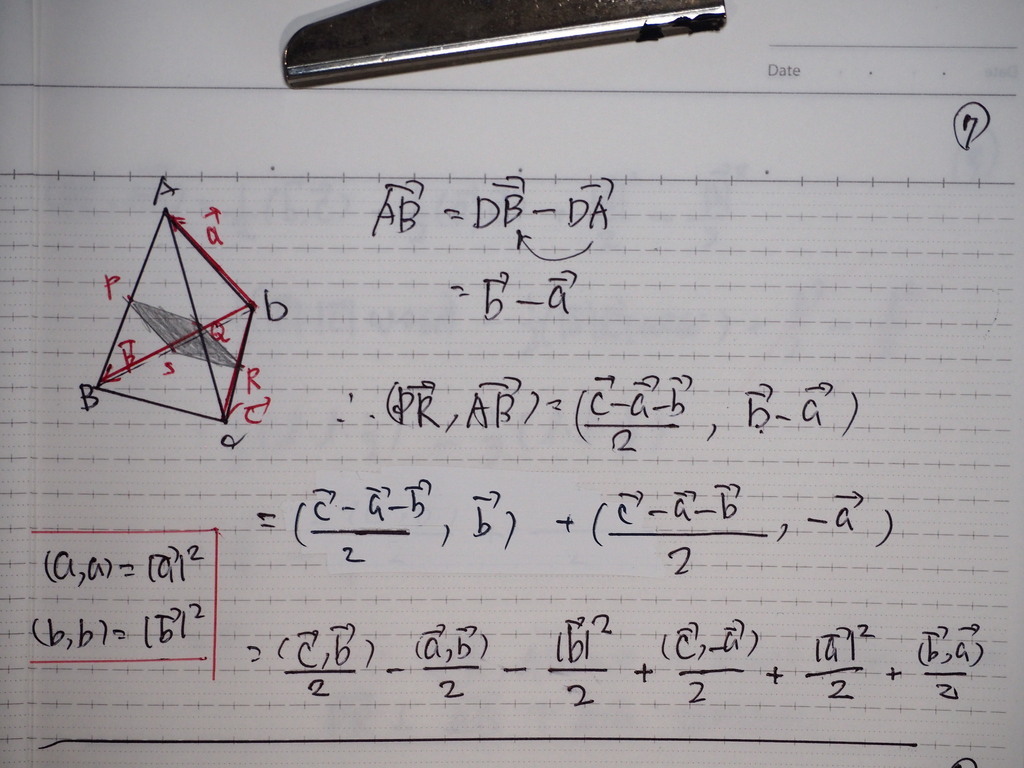 Date
⑦
A
a⃗
P
D
Q
b⃗
S
B
R
c⃗
C
A⃗B = D⃗B − D⃗A
= b⃗ − a⃗
∴ (P⃗R, A⃗B) = ((c⃗ − a⃗ − b⃗)/2, b⃗ − a⃗)
= ((c⃗ − a⃗ − b⃗)/2, b⃗) + ((c⃗ − a⃗ − b⃗)/2, −a⃗)
(a,a) = |a⃗|²
(b,b) = |b⃗|²
= (c⃗,b⃗)/2 − (a⃗,b⃗)/2 − |b⃗|²/2 + (c⃗,−a⃗)/2 + |a⃗|²/2 + (b⃗,a⃗)/2